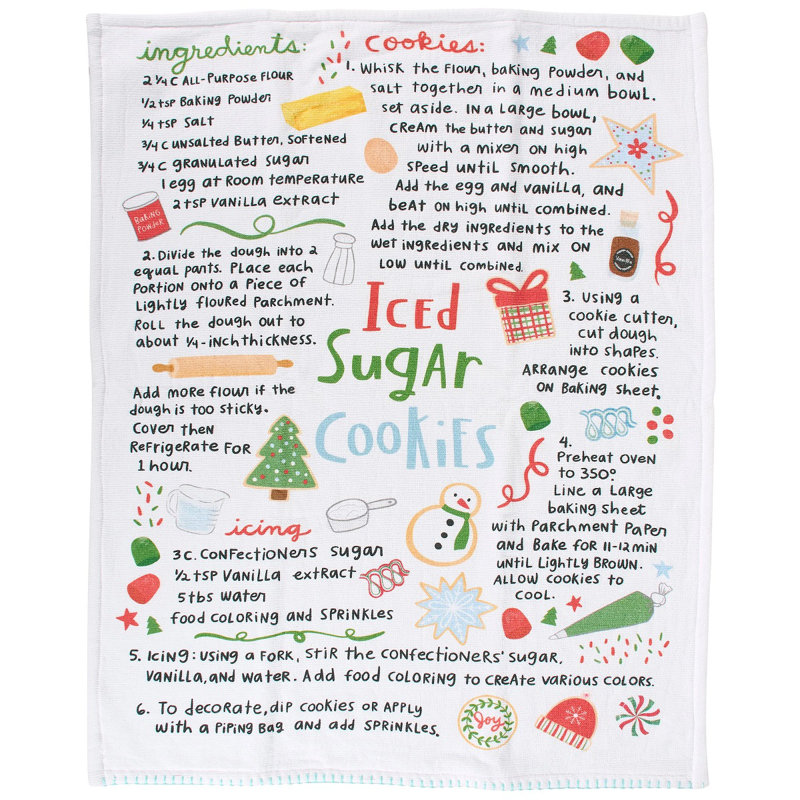 ingredients:
2 1/4 C All-Purpose Flour
1/2 tsp Baking Powder
1/4 tsp Salt
3/4 C unsalted Butter, Softened
3/4 C granulated sugar
1 egg at Room temperature
2 tsp vanilla extract
BAKING
POWDER
cookies:
1. Whisk the flour, baking powder, and
salt together in a medium bowl.
set aside. In a large bowl,
cream the butter and sugar
with a mixer on high
speed until smooth.
Add the egg and vanilla, and
beat on high until combined.
Add the dry ingredients to the
wet ingredients and mix on
low until combined.
Vanilla
2. Divide the dough into 2
equal parts. Place each
portion onto a piece of
lightly floured parchment.
Roll the dough out to
about 1/4-inch thickness.
Add more flour if the
dough is too sticky.
Cover then
Refrigerate for
1 hour.
Iced
Sugar
Cookies
3. Using a
cookie cutter,
cut dough
into shapes.
Arrange cookies
on baking sheet.
4.
Preheat oven
to 350°.
Line a large
baking sheet
with parchment paper
and Bake for 11-12 min
until lightly brown.
Allow cookies to
cool.
icing
3 c. confectioners sugar
1/2 tsp vanilla extract
5 tbs water
food coloring and sprinkles
5. Icing: Using a fork, stir the confectioners' sugar,
vanilla, and water. Add food coloring to create various colors.
6. To decorate, dip cookies or apply
with a piping bag and add sprinkles.
Joy